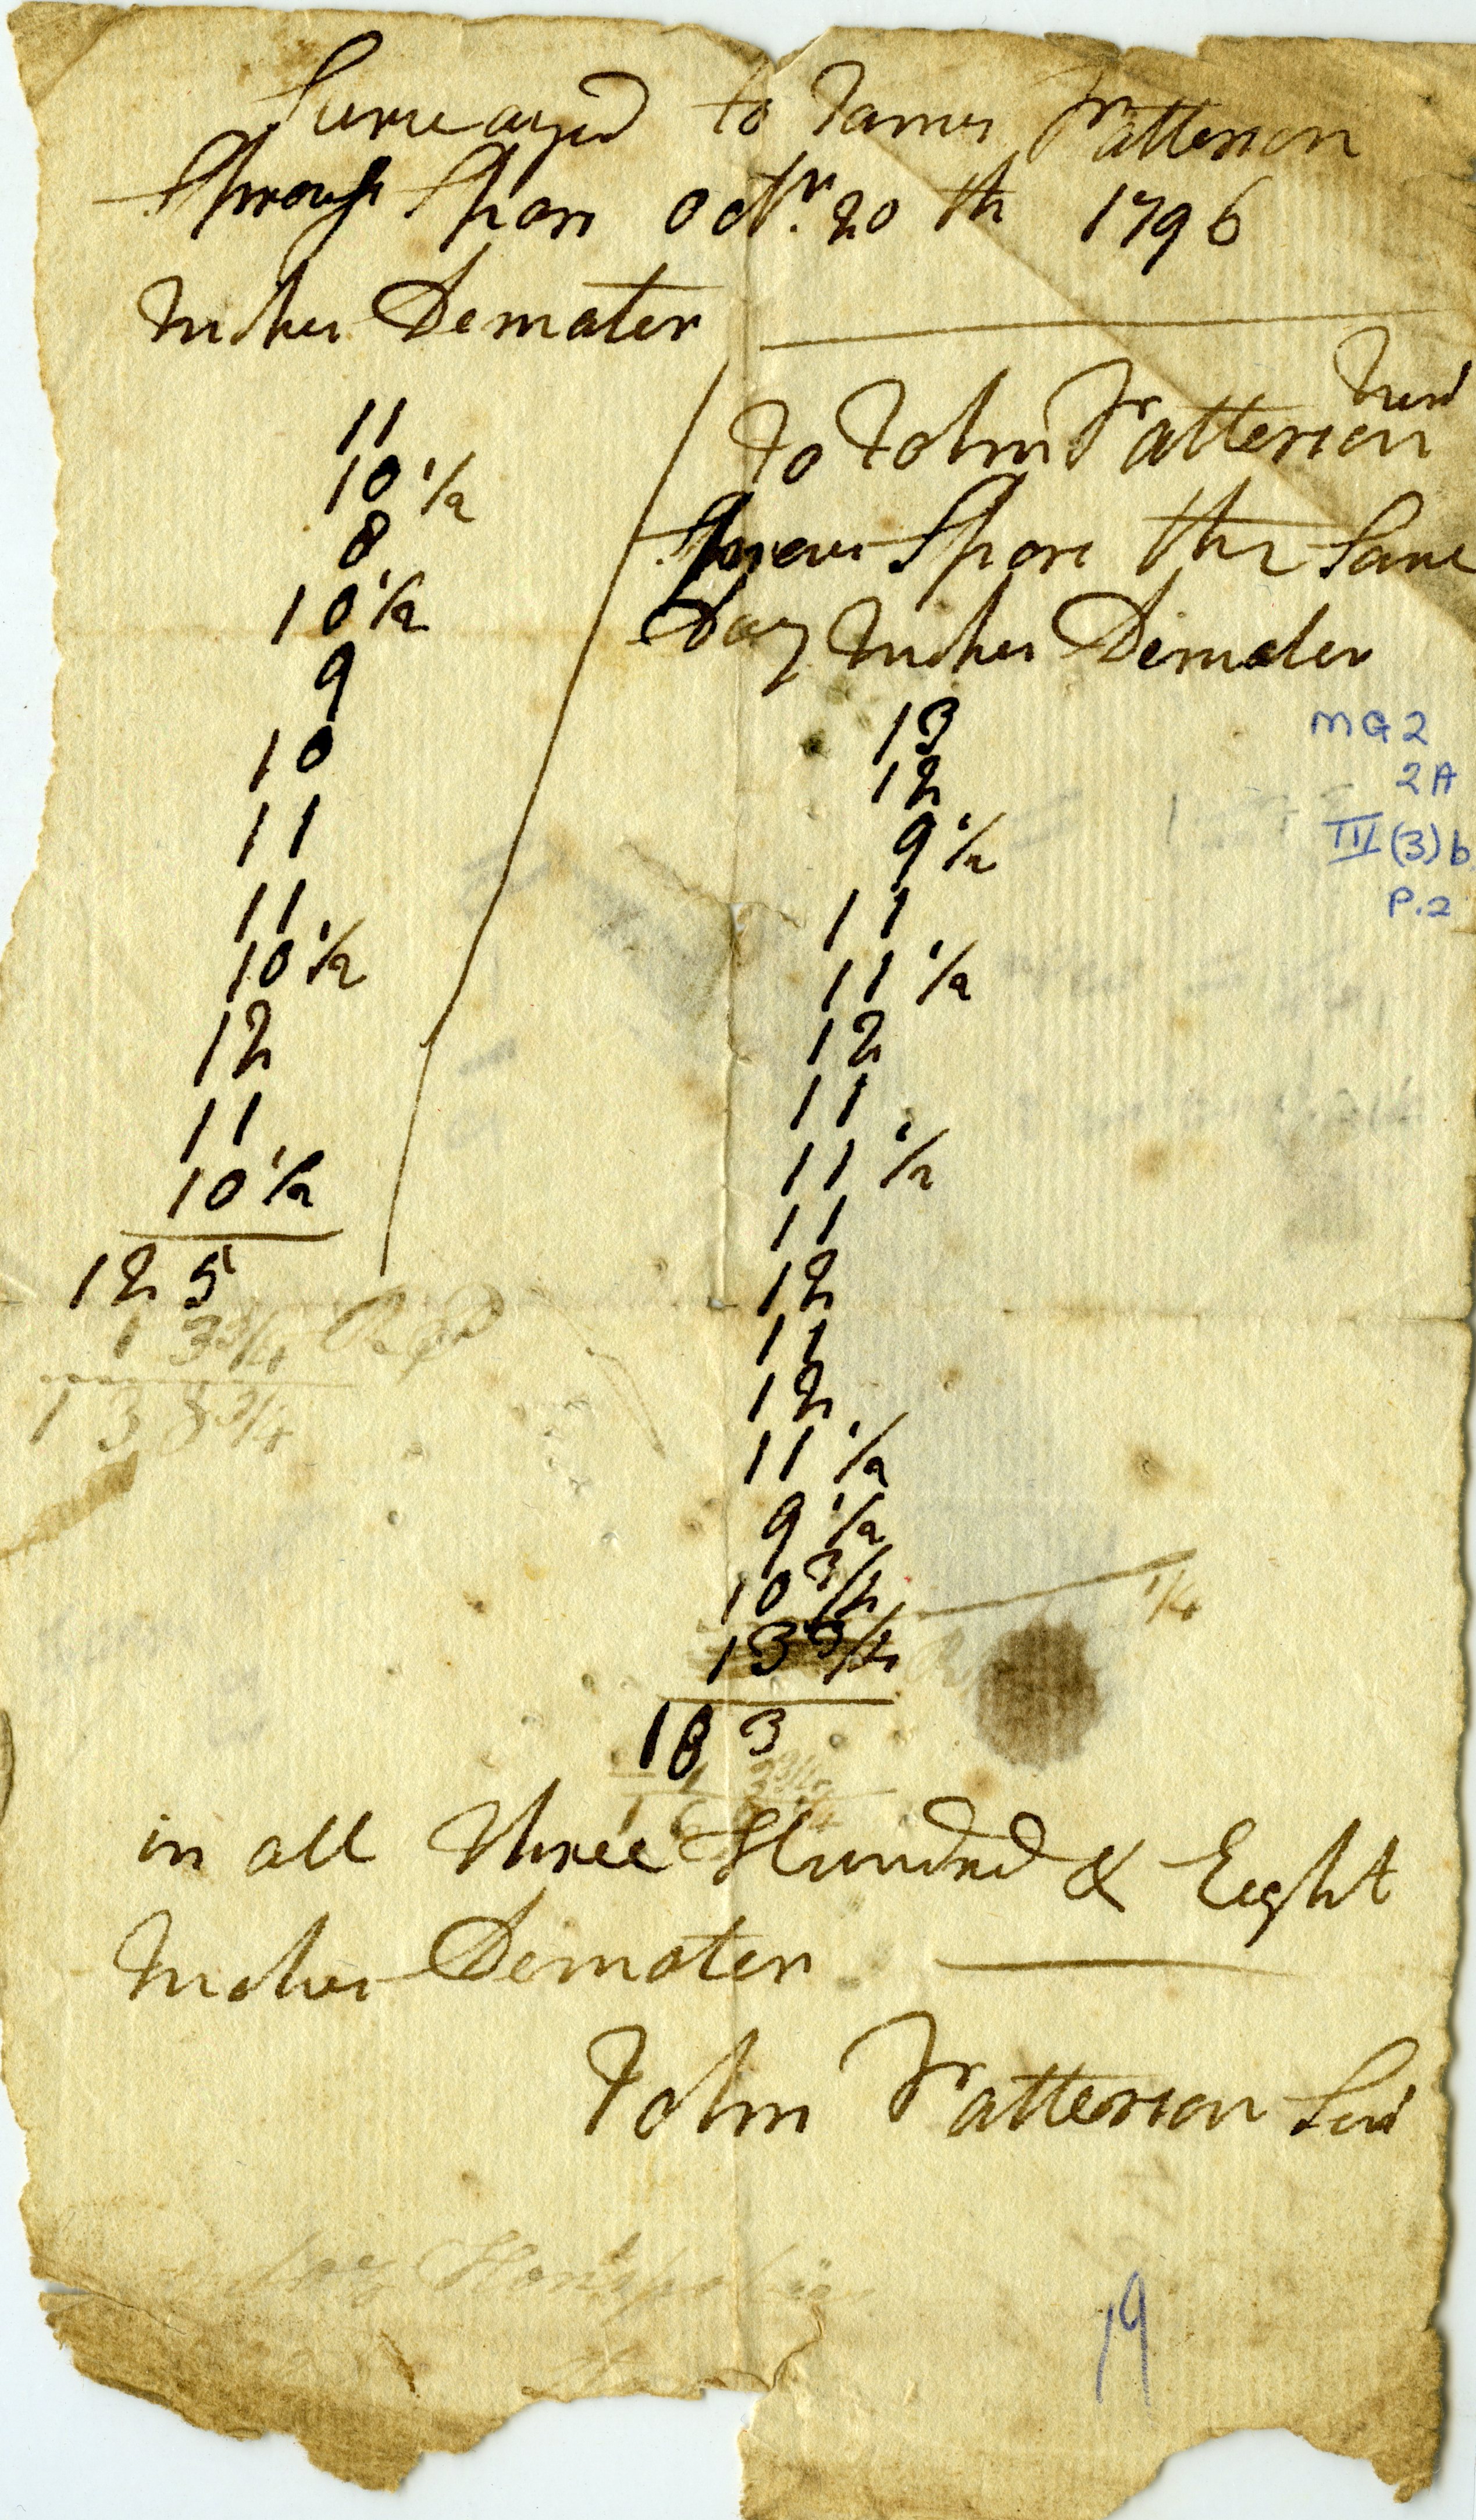 Surveayed to James Patterson
Octr. 20 th 1796
Inches Demater
11
10 1/2
8
10 1/2
9
10
11
11
10 1/2
12
11
10 1/2
12 5
1 3 3/4
1 3 8 3/4
Juni
to John Patterson
the Same
Day Inches Demater
13
12
9 1/2
11
11 1/2
12
11
11 1/2
11
12
11
12
11 1/2
9 1/2
10 3/4
1/4
13 3/4
18 3
MG2
2A
III (3) b
P.2
in all three Hundred & Eight
Inches Demater
John Patterson Seni
19